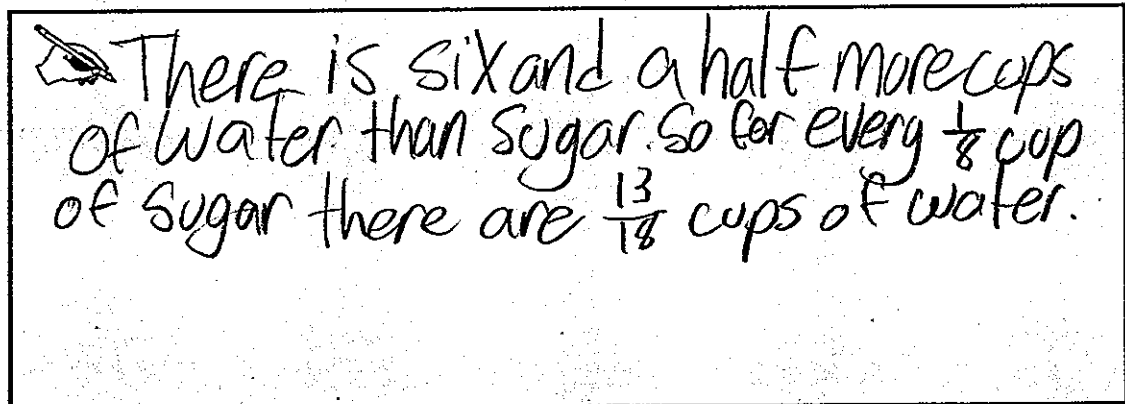 There is six and a half more cups
of water than sugar. So for every 1/8 cup
of sugar there are 13/18 cups of water.